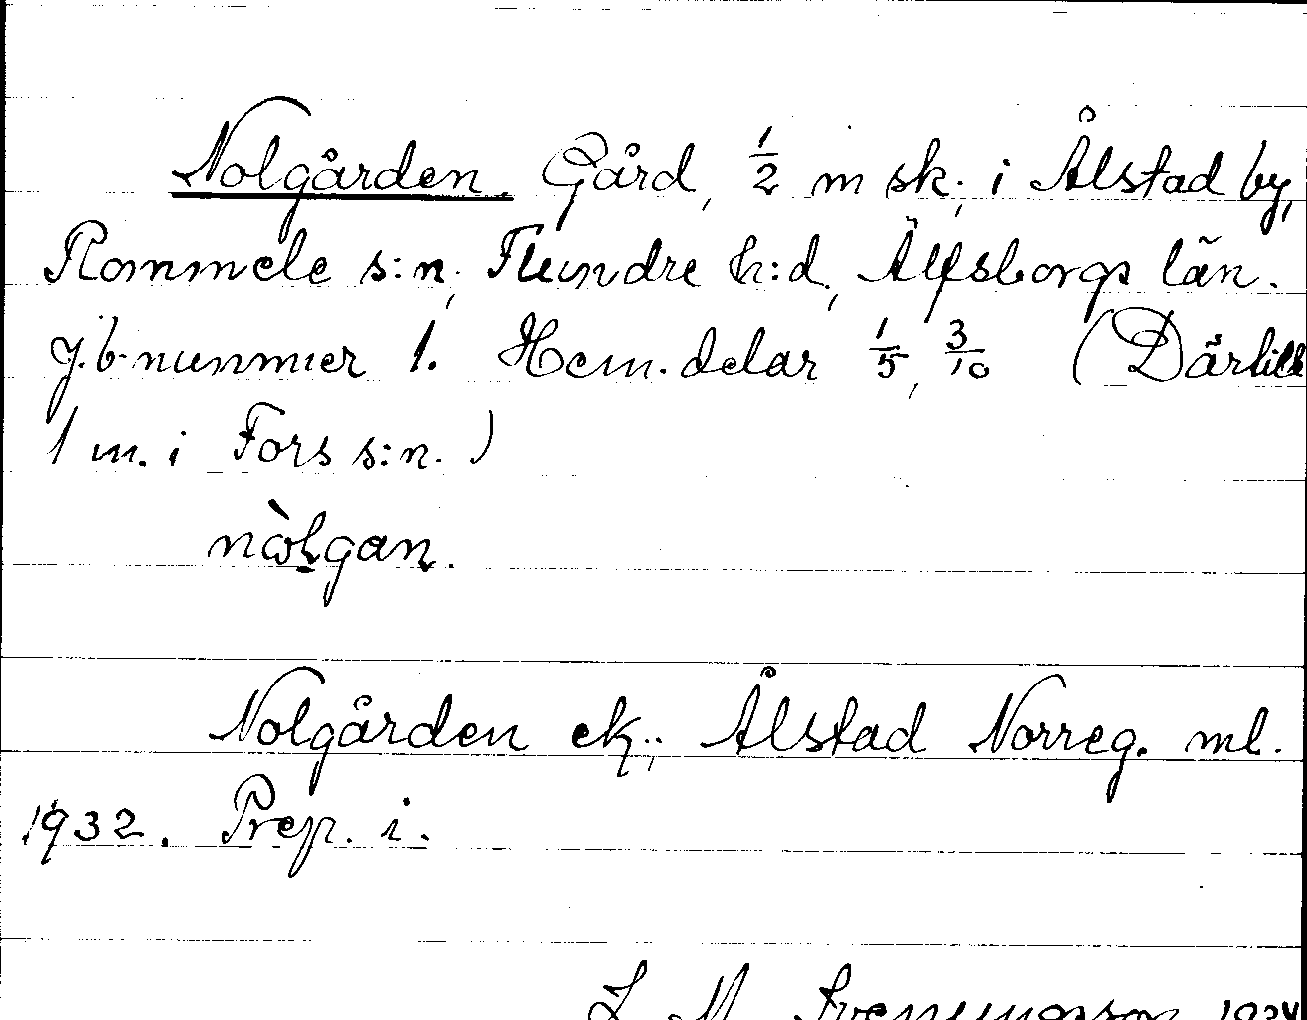 Nolgården. Gård, 1/2 m sk., i Ålstad by,
Rommele s:n, Flundre h:d, Älfsborgs län.
J.b.nummer 1. Hem.delar 1/5, 3/10 (Därtill
1 m. i Fors s:n.)
nòlgan.
Nolgården ek.; Ålstad Norreg. ml.
1932. Prep. i.